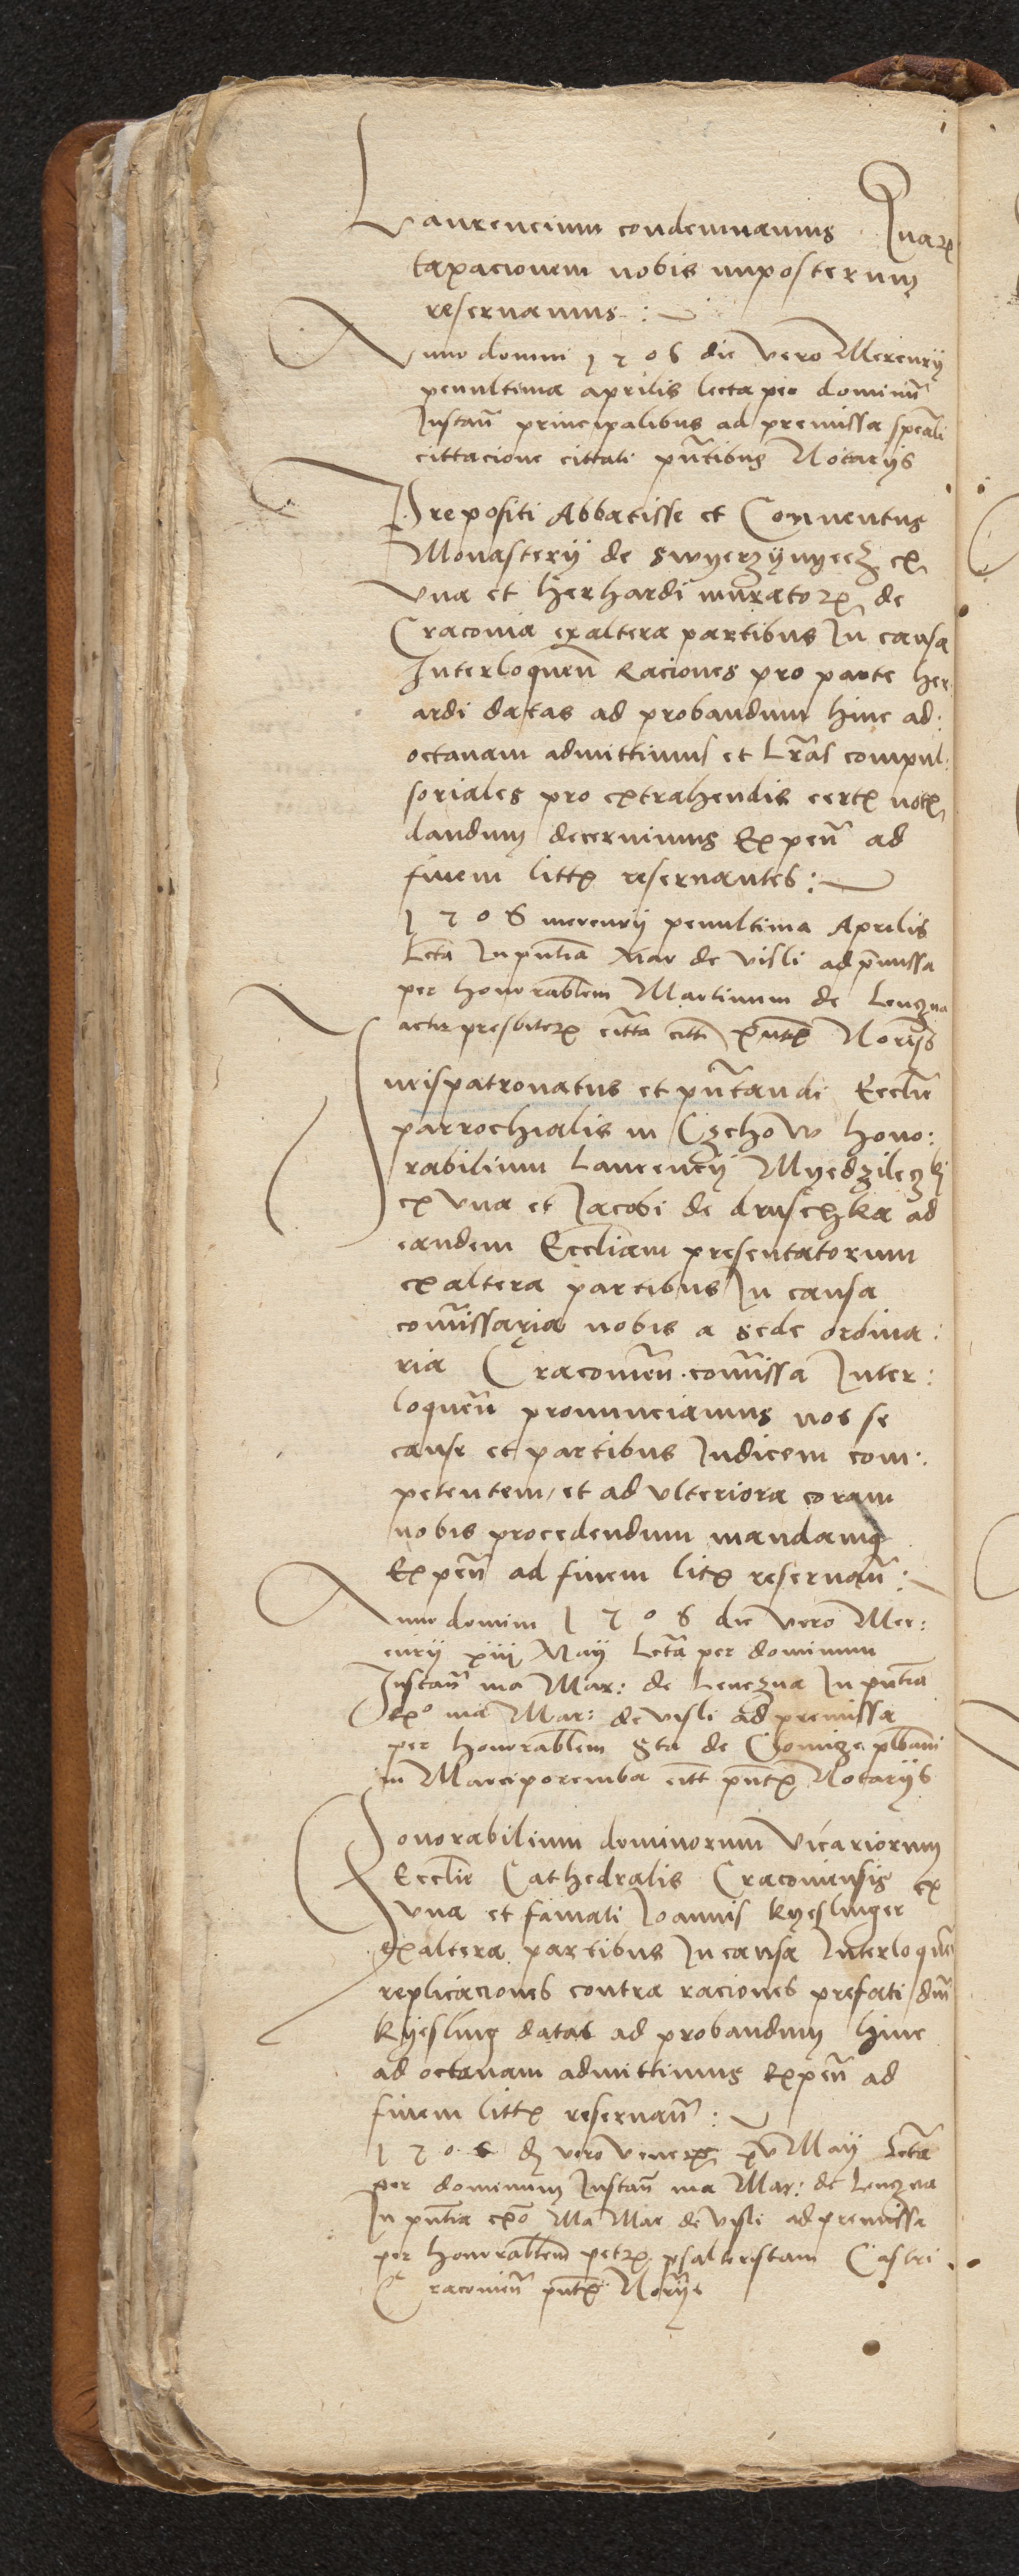 Laurencium condemnamus Quar
taxacionem nobis imposterum
reservamus :
Anno domini 1506 die vero Mercurij
penultima aprilis lecta per dominū
Instan̄ principalibus ad premissa speāli
cittacione cittati pn̄tibus Notarijs
Prepositi Abbatisse et Conventus
Monasterij de Swyerzÿnyecz ex
una et Herhardi murator de
Cracovia exaltera partibus In causa
Interloquen̄ Raciones pro parte Her
ardi datas ad probandum hinc ad :
octavam admittimus et Lr̄as compul :
soriales pro extrahendis cert not
dandum decernimus Expen̄ ad
finem litt reservantes :
1506 mercurij penultima Aprilis
Lcta In pn̄tia Mar de Visli ad pmissa
per honorablem Martinum de Lenczna
presbiter citta pn̄t Norijs
Jurispatronatus et pn̄tandi Ecclie
parrochialis in Czchow hono :
rabilium Laurencij Myedzileczkj
ex una et Jacobi de druschka ad
eandem Eccliam presentatorum
ex altera partibus In causa
com̄issaria nobis a sede ordina :
ria Cracovien̄ . com̄issa Inter :
loquen̄ pronunciamus nos se
cause et partibus Judicem com :
petentem / et ad ulteriora coram
nobis procedendum mandamq
Expen̄ ad finem litis reservan̄ :
Anno domini 1506 die vero Mer :
curij xiij May Lcta per dominum
Instan̄ ma Mar : de Lenczna In pn̄tia
exo ma Mar : de visli ad premissa
per honorablem Sta de plbani
in Marciporemba citt pn̄t Notarijs
Honorabilium dominorum Vicariorum
Ecclie Cathedralis Cracoviensis ex
una et famati Joannis Kyeslinger
exaltera partibus In causa Interloquen
replicaciones contra raciones prefati dni
Kyesling datas ad probandum hinc
ad octavam admittimus Expen̄ ad
finem litt reservan̄ :
1506 d vero veneris xv May Lcta
per dominum Instan̄ ma Mar : de Lenczna
In pn̄tia exo Ma Mar de Visli ad premissa
per honorablem petr psalteristam Castri
Cracovien̄ pn̄t Norijs